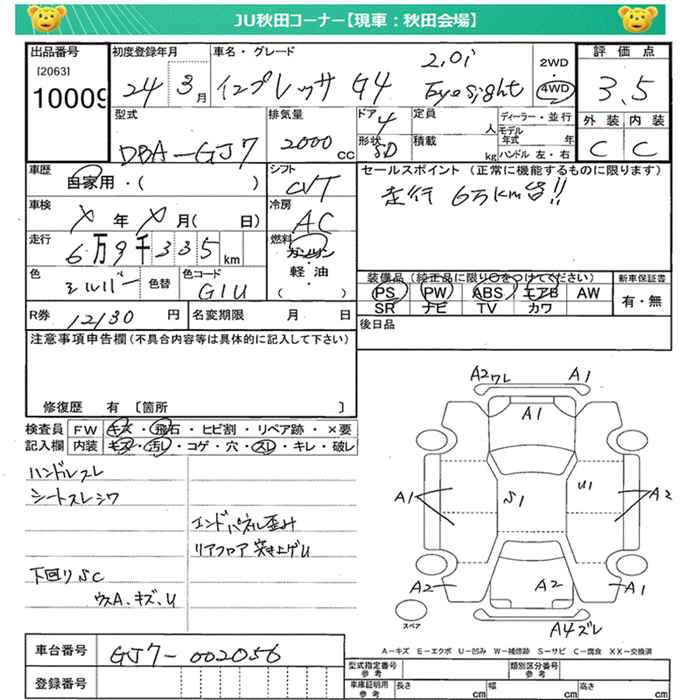 JU秋田コーナー【現車：秋田会場】
出品番号 初度登録年月 車名・グレード 評価点
[2063] 10009 24 3月 インプレッサ G4 2.0i Eyesight 2WD 4WD 3.5
型式 排気量 ドア 4 定員 人 ディーラー・並行 外装 内装
DBA-GJ7 2000cc 形状 SD 積載 kg モデル年式 年 ハンドル 左・右 C C
車歴 自家用・( ) シフト CVT セールスポイント（正常に機能するものに限ります）
車検 メ年メ月(日) 冷房 AC 走行 6万km台!!
走行 6万9千335km 燃料 ガソリン 軽油・( )
色 シルバー 色替 色コード G1U 装備品（純正品に限り○をつけてください） 新車保証書
PS PW ABS エアB AW 有・無
SR ナビ TV カワ
R券 12130円 名変期限 月 日 後日品
注意事項申告欄（不具合内容等は具体的に記入して下さい）
修復歴 有 〔箇所 〕
検査員 FW キズ・飛石・ヒビ割・リペア跡・×要
記入欄 内装 キズ・汚レ・コゲ・穴・スレ・キレ・破レ
ハンドルスレ
シートスレシワ
エンドパネル歪ミ
リアフロア突き上げU
下回りSC
ウスA、キズ、U
A2ワレ A1
A1
A1 S1 U1 A2
A2 A2 A1
スペア A4ズレ
A-キズ E-エクボ U-凹み W-補修跡 S-サビ C-腐食 XX-交換済
車台番号 GJ7-002056 型式指定番号 参考 類別区分番号 参考
登録番号 車庫証明用 参考 長さ cm 幅 cm 高さ cm